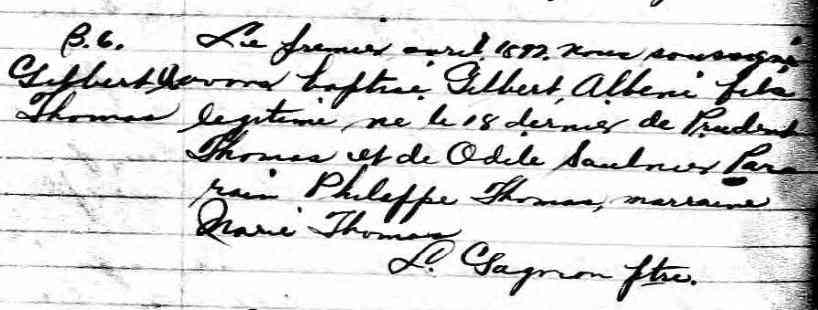 B. 6. Le premier avril 1892 nous soussigné
Gilbert A avons baptisé Gilbert Albeni fils
Thomas legitime ne le 18 dernier de Prudent
Thomas et de Odile Saulnier Par
rain Philippe Thomas, marraine
Marie Thomas
L. Gagnon ptre.